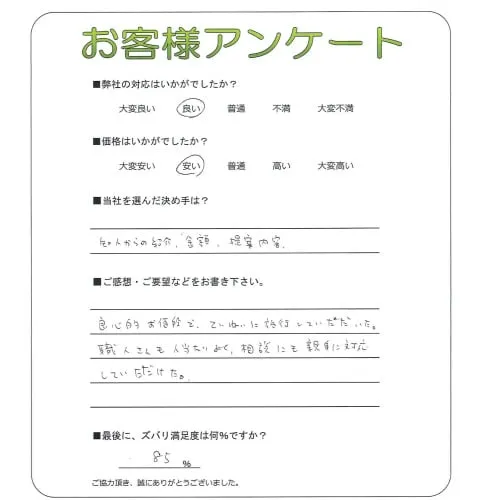 お客様アンケート
■弊社の対応はいかがでしたか？
大変良い 良い 普通 不満 大変不満
■価格はいかがでしたか？
大変安い 安い 普通 高い 大変高い
■当社を選んだ決め手は？
知人からの紹介、金額、提案内容。
■ご感想・ご要望などをお書き下さい。
良心的お値段で、ていねいに施行していただいた。
職人さんも人当たりよく、相談にも親身に対応
していただけた。
■最後に、ズバリ満足度は何％ですか？
85 %
ご協力頂き、誠にありがとうございました。